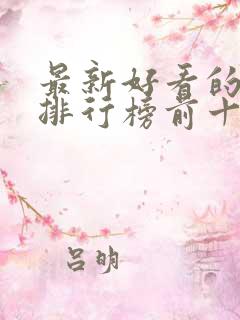 最新好看的
排行榜前十
吕明